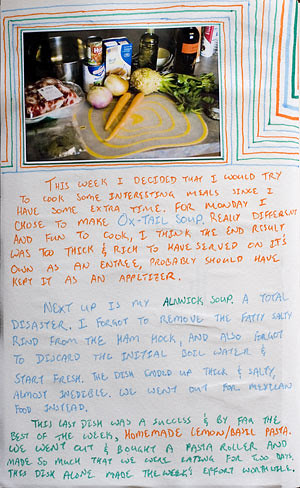 THIS WEEK I DECIDED THAT I WOULD TRY
TO COOK SOME INTERESTING MEALS SINCE I
HAVE SOME EXTRA TIME. FOR MONDAY I
CHOSE TO MAKE OX-TAIL SOUP. REALLY DIFFERENT
AND FUN TO COOK, I THINK THE END RESULT
WAS TOO THICK & RICH TO HAVE SERVED ON IT'S
OWN AS AN ENTREE, PROBABLY SHOULD HAVE
KEPT IT AS AN APPETIZER.
NEXT UP IS MY ALNWICK SOUP. A TOTAL
DISASTER. I FORGOT TO REMOVE THE FATTY SALTY
RIND FROM THE HAM HOCK, AND ALSO FORGOT
TO DISCARD THE INITIAL BOIL WATER &
START FRESH. THE DISH ENDED UP THICK & SALTY,
ALMOST INAEDIBLE. WE WENT OUT FOR MEXICAN
FOOD INSTEAD.
THIS LAST DISH WAS A SUCCESS & BY FAR THE
BEST OF THE WEEK, HOMEMADE LEMON/BASIL PASTA.
WE WENT OUT & BOUGHT A PASTA ROLLER AND
MADE SO MUCH THAT WE WERE EATING FOR DAYS.
THIS DISH ALONE MADE THE WEEK'S EFFORT WORTHWILE.